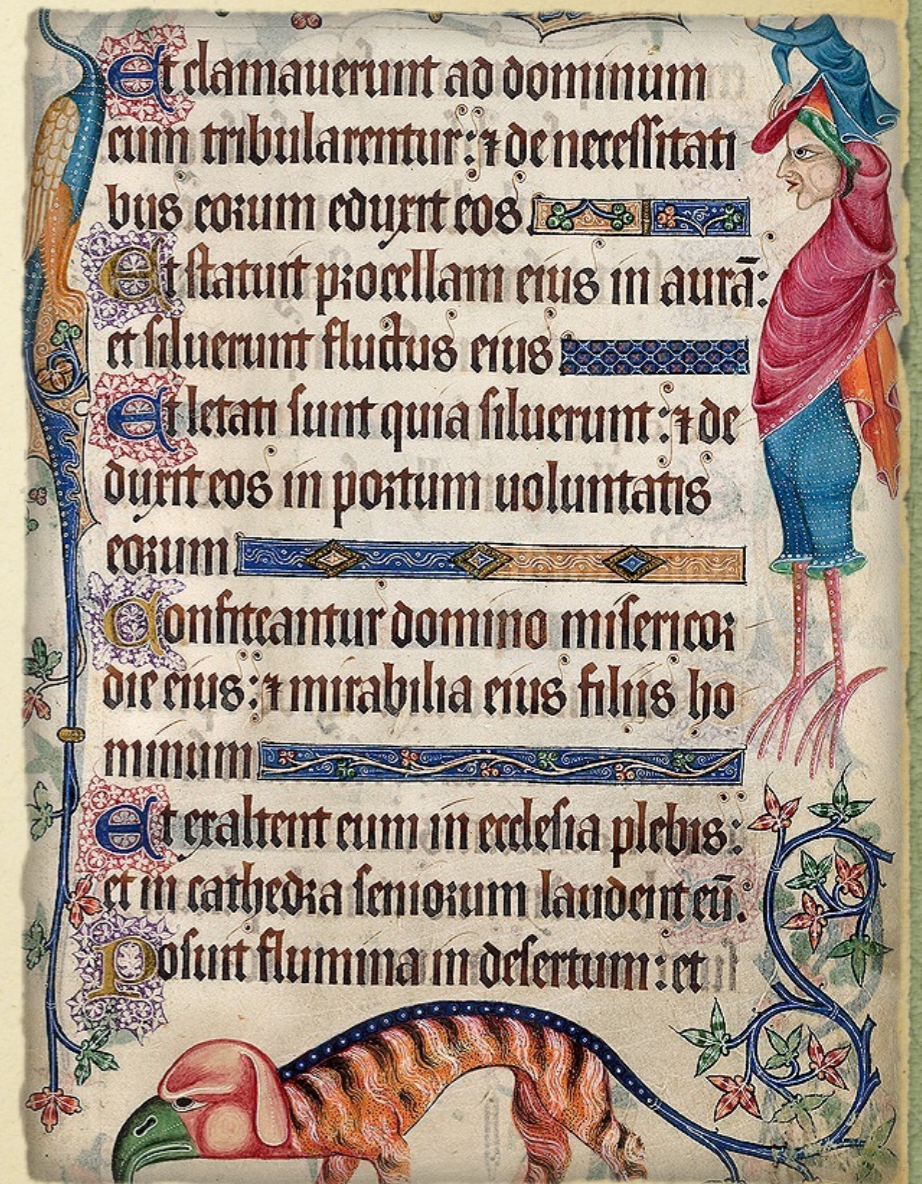 Et clamauerunt ad dominum
cum tribularentur: ⁊ de necessitati
bus eorum eduxit eos
Et statuit procellam eius in aurā:
et siluerunt fluctus eius
Et letati sunt quia siluerunt: ⁊ de
duxit eos in portum uoluntatis
eorum
Confiteantur domino misericor
die eius: ⁊ mirabilia eius filiis ho
minum
Et exaltent eum in ecclesia plebis:
et in cathedra seniorum laudent eū:
Posuit flumina in desertum: et